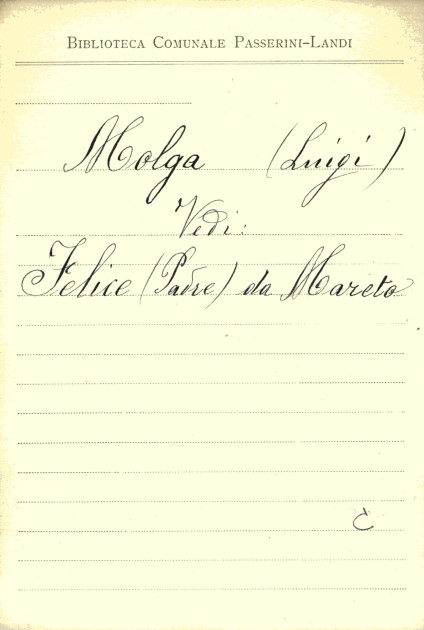 BIBLIOTECA COMUNALE PASSERINI-LANDI
Molga (Luigi)
Vedi:
Felice (Padre) da Mareto